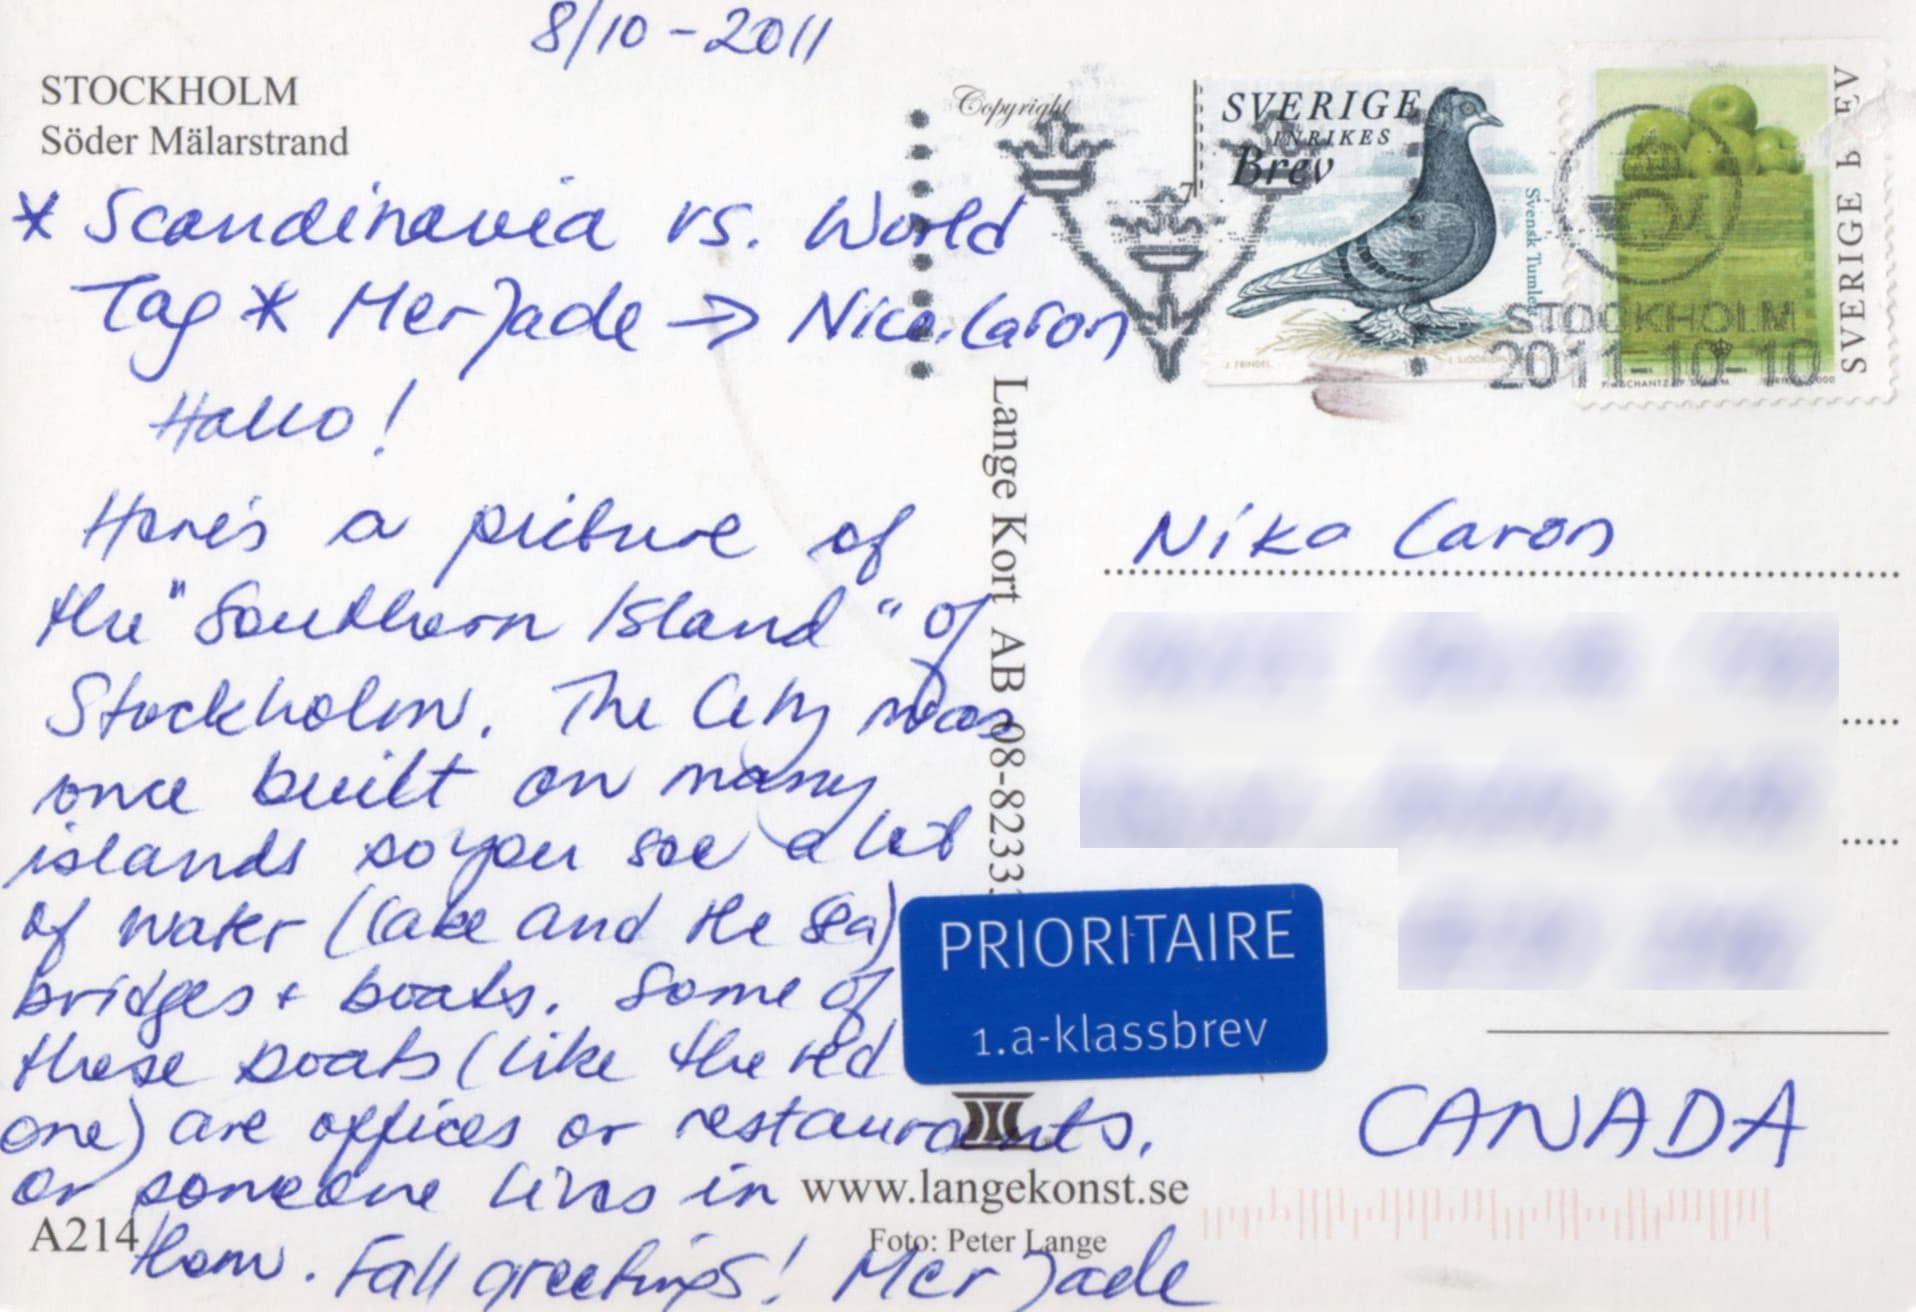 8/10-2011
STOCKHOLM
Söder Mälarstrand
* Scandinavia vs. World
Tag * MerJade → Nica.Caron
Hallo!
Here's a picture of
the "Southern Island" of
Stockholm. The City was
once built on many
islands so you see a lot
of water (lake and the sea)
bridges + boats. Some of
these boats (like the red
one) are offices or restaurants.
or someone lives in
them. Fall greetings! MerJade
A214
Copyright
Lange Kort AB 08-8233
www.langekonst.se
Foto: Peter Lange
SVERIGE
INRIKES
Brev
Svensk Tumlet
J. FRINDEL
SVERIGE BREV
STOCKHOLM
2011-10-10
Nika Caron
PRIORITAIRE
1.a-klassbrev
CANADA